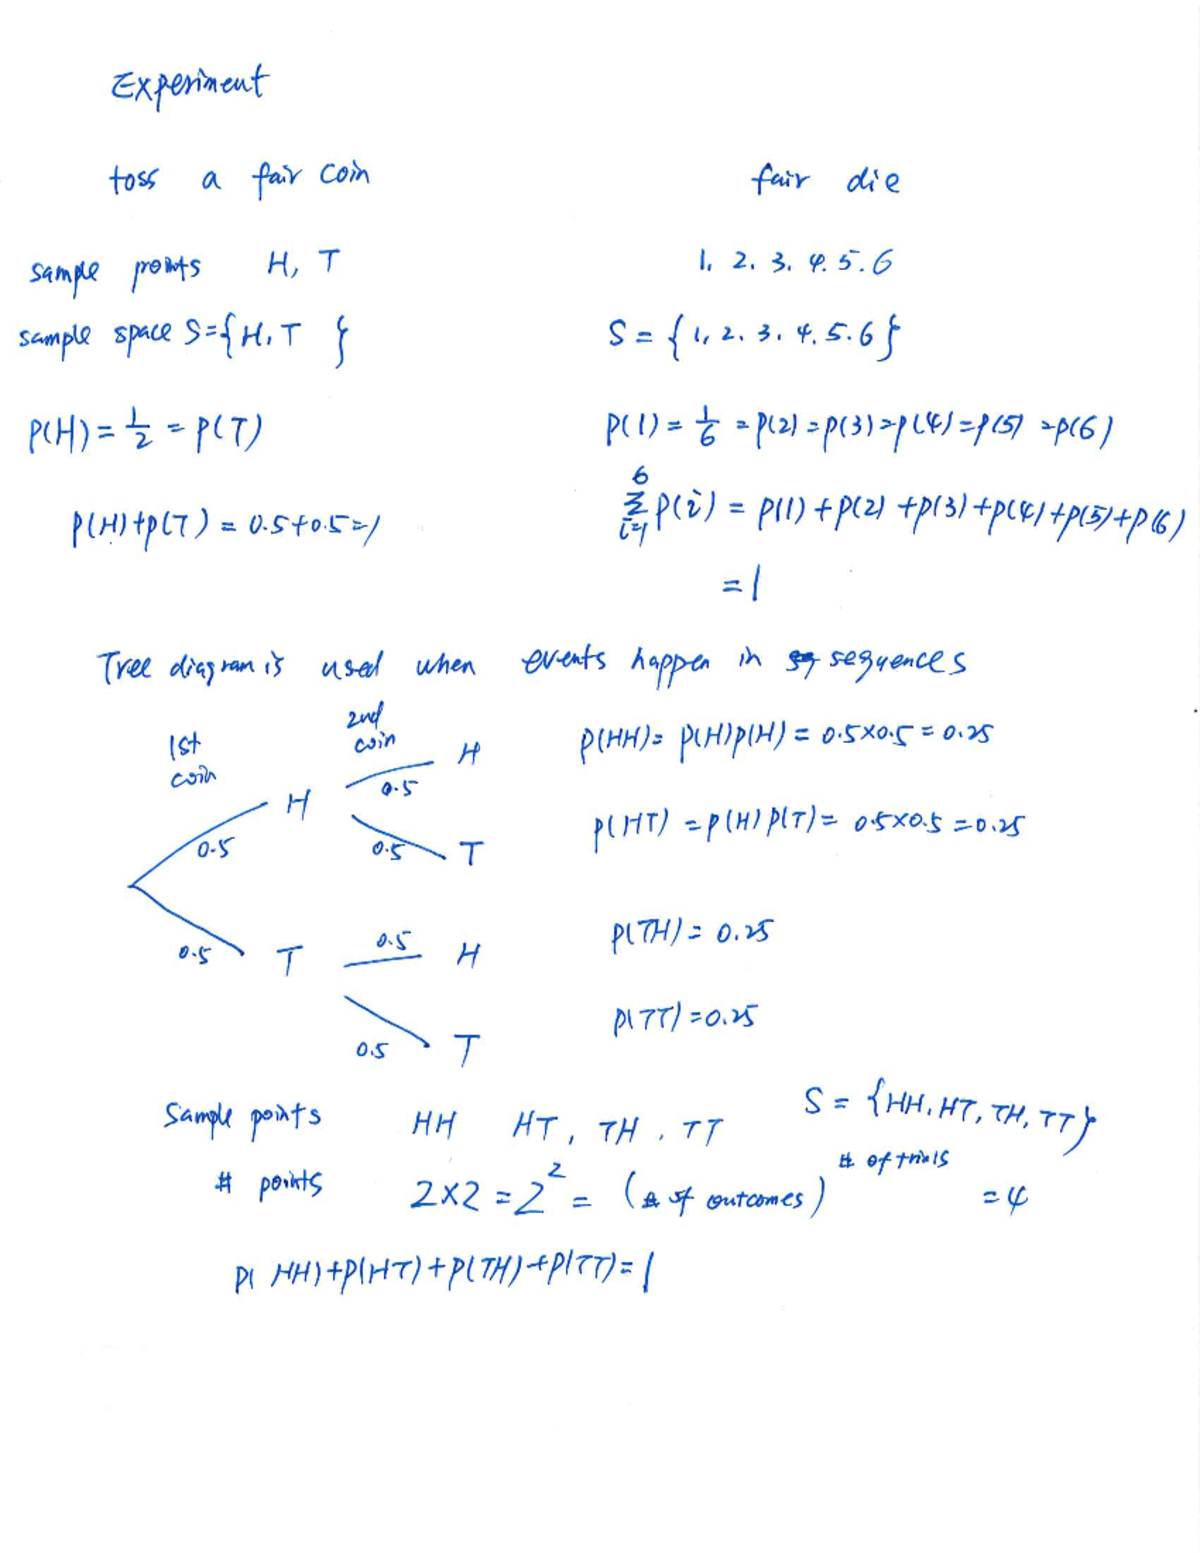 Experiment
toss a fair coin
fair die
sample points H, T
1, 2. 3. 4. 5. 6
sample space S={H, T }
S = { 1, 2. 3. 4. 5. 6 }
P(H) = 1/2 = P(T)
P(1) = 1/6 = P(2) = P(3) = P(4) = P(5) = P(6)
P(H)+P(T) = 0.5+0.5=1
6
Σ P(i) = P(1) + P(2) + P(3) + P(4) + P(5) + P(6)
i=1
= 1
Tree diagram is used when events happen in sequences
1st coin
2nd coin
H
0.5
P(HH) = P(H)P(H) = 0.5×0.5 = 0.25
H
0.5
0.5
T
P(HT) = P(H) P(T) = 0.5×0.5 = 0.25
0.5
T
0.5
H
P(TH) = 0.25
0.5
T
P(TT) = 0.25
Sample points HH HT, TH, TT
S = {HH, HT, TH, TT}
# points 2×2 = 2^2 = (# of outcomes)^# of trials = 4
P( HH)+P(HT)+P(TH)+P(TT) = 1